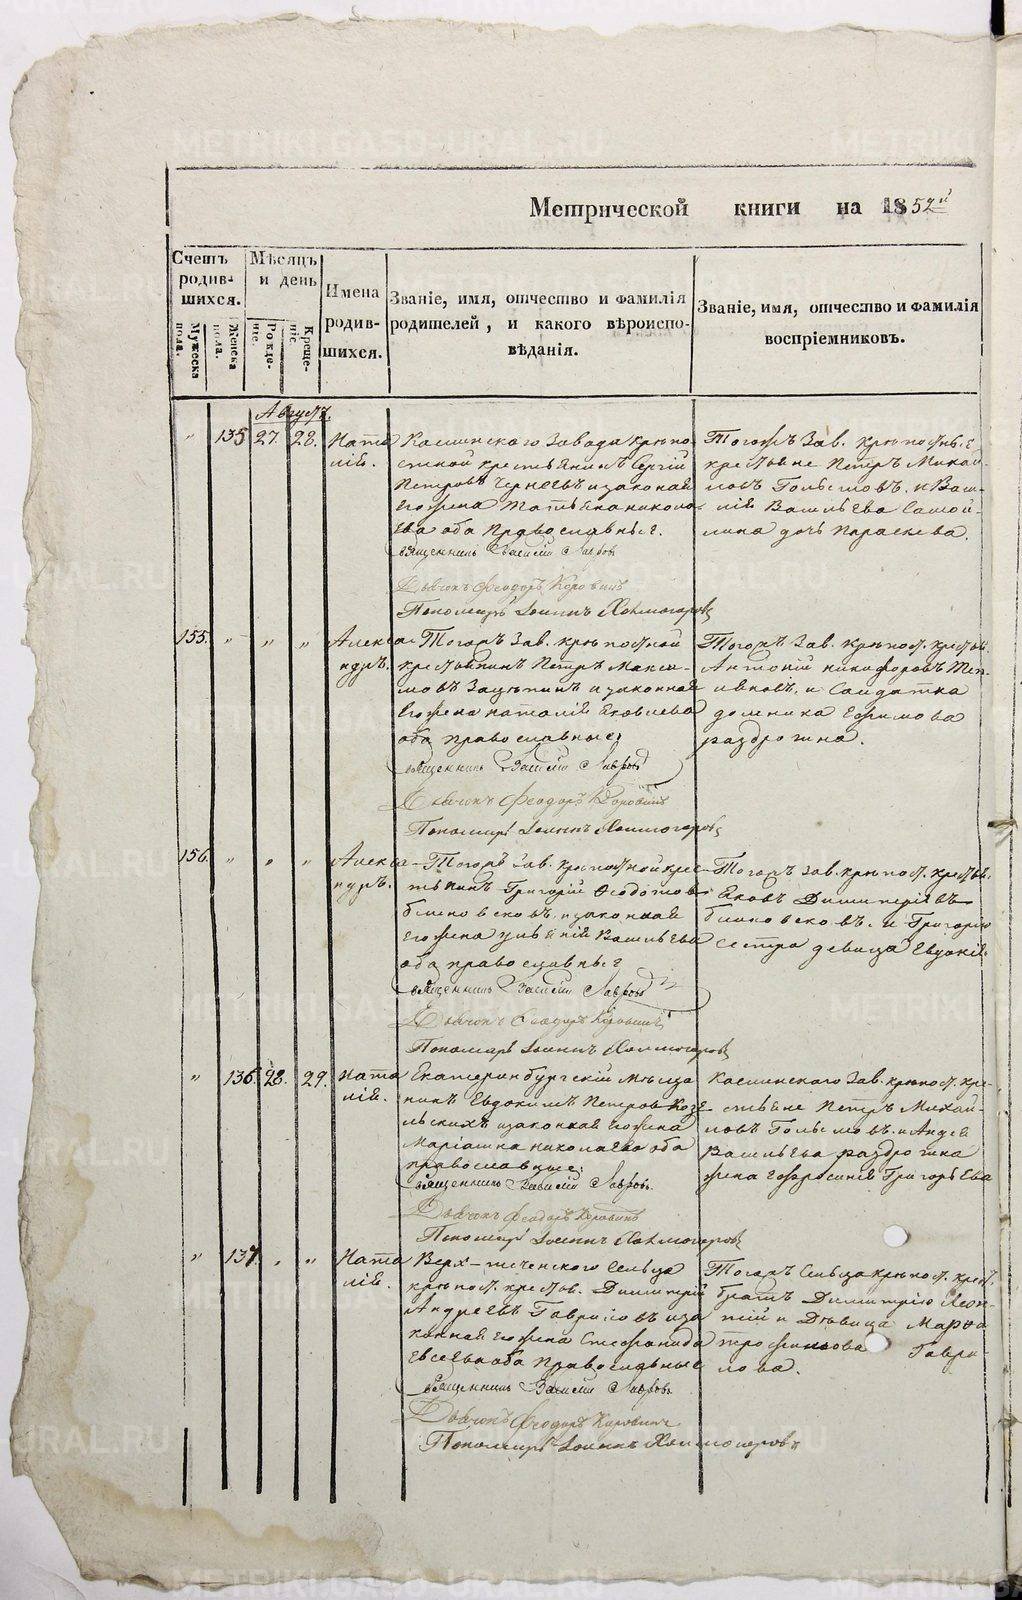 Метрической книги на 1852й
Счетъ родив-шихся.
Мужеска пола.
Женска пола.
Мѣсяцъ и день
Рожде-ніе.
Креще-ніе.
Имена родив-шихся.
Званіе, имя, отчество и фамилія
родителей, и какого вѣроиспо-
вѣданія.
Званіе, имя, отчество и фамилія
воспріемниковъ.
Августъ.
" 135 27. 28. Ната
лія.
Каслинскаго Завода крѣпо
стной крестьянинъ Сергій
Петровъ Черновъ и законная
его жена Татьяна Николо
ева оба Православные.
Священникъ Василій Лавровъ
Дьяконъ Феодоръ Коровинъ
Пономарь Іоаннъ Холмогоровъ
Тогожъ Зав. крѣпостные
крестьяне Петръ Михай
ловъ Голышовъ и Васи-
лія Васильева Самой-
лина дочь Параскева.
155. " " " Алекса
ндръ.
Тогожъ Зав. крѣпостной
крестьянинъ Петръ Макси-
мовъ Зацепинъ и законная
его жена Наталія Яковлева
оба православные.
Священникъ Василій Лавровъ
Дьяконъ Феодоръ Коровинъ
Пономарь Іоаннъ Холмогоровъ
Тогожъ Зав. крѣпост. крестьян.
Антоній Никифоровъ
и Солдатка
Домника Ефимова
Раздрогина.
156. " " " Алекса
ндръ.
Тогожъ Зав. крѣпостной крес-
тьянинъ Григорій Федотовъ
Блиновсковъ и законная
его жена Ульянія Васильева
оба православные
Священникъ Василій Лавровъ
Дьяконъ Феодоръ Коровинъ
Пономарь Іоаннъ Холмогоровъ
Тогожъ Зав. крѣпост. крестьян.
Яковъ Димитріевъ
Блиновсковъ и Григорію
сестра девица Евдокія.
" 136. 28. 29. Ната
лія.
Екатеринбургскій Мѣща
нинъ Евдокимъ Петровъ Козе
льскихъ и законная его жена
Маріанна Николаева оба
православные
Священникъ Василій Лавровъ.
Дьяконъ Феодоръ Коровинъ
Пономарь Іоаннъ Холмогоровъ
Каслинскаго Зав. крѣпост. кре-
стьяне Петръ Михай-
ловъ Голышовъ и Андрея
Васильева Раздрогина
жена Ефросинія Григорьева
" 137. " " Ната
лія.
Верх-теченского Сельца
крѣпост. крестьян. Димитрій
Андреевъ Гавриловъ и зако
нная его жена Стефанида
Евсеева оба Православные
Священникъ Василій Лавровъ
Дьяконъ Феодоръ Коровинъ
Пономарь Іоаннъ Холмогоровъ
Тогожъ Сельца крѣпост. крест.
братъ Димитрію Леон-
тій и Дѣвица Марфа
Трофимова Гаври-
лова.
METRIKI.GASO-URAL.RU